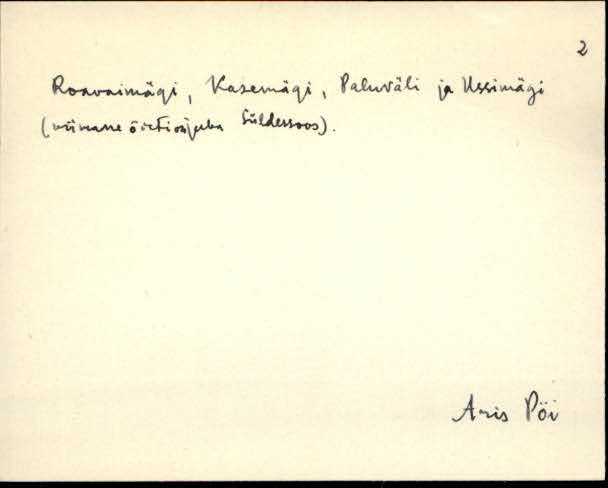 2
Roavaimägi, Kasemägi, Paluväli ja Ussimägi
(viimane juba Süldessoos).
Aris Pöi